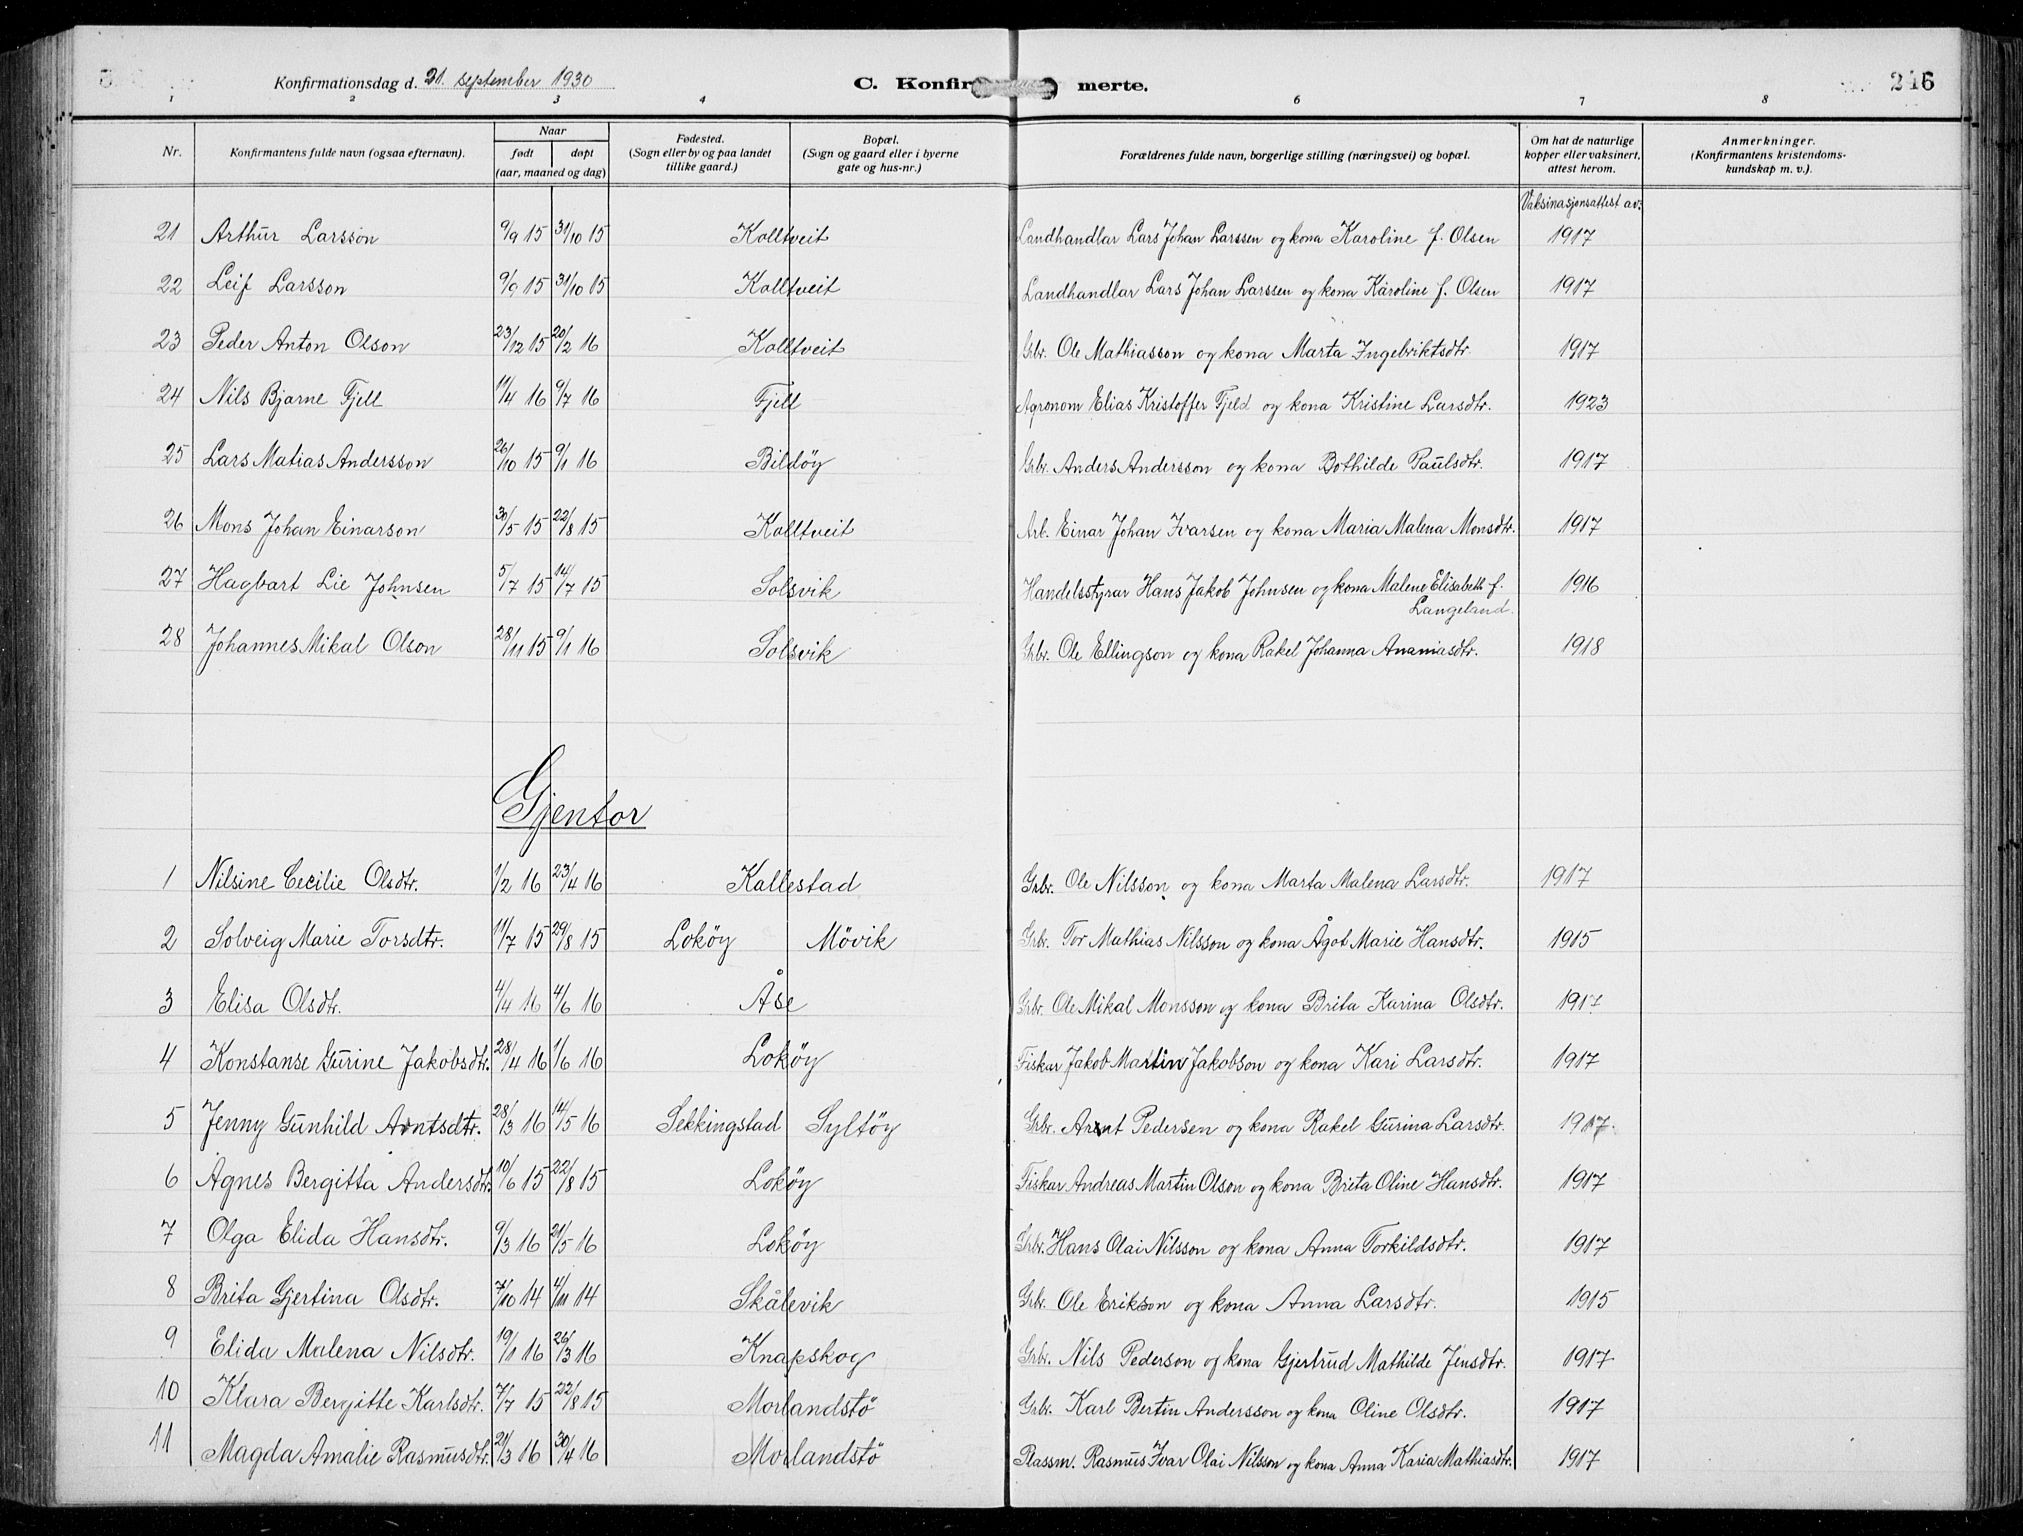 Konfirmationsdag d. 21. september 1930
C. Konfir merte.
246
1 2 3 4 6 7 8
Nr.
Konfirmantens fulde navn (ogsaa efternavn).
Naar
født døpt
(aar, maaned og dag)
Fødested.
(Sogn eller by og paa landet
tillike gaard.)
Bopæl.
(Sogn og gaard eller i byerne
gate og hus-nr.)
Forældrenes fulde navn, borgerlige stilling (næringsvei) og bopæl.
Om hat de naturlige
kopper eller vaksinert,
attest herom.
Anmerkninger.
(Konfirmantens kristendoms-
kundskap m. v.).
Vaksinasjonsattest av:
21 Arthur Larsson 9/9 15 31/10 15 Kolltveit Landhandlar Lars Johan Larssen og kona Karoline f. Olsen 1917
22 Leif Larsson 9/9 15 31/10 15 Kolltveit Landhandlar Lars Johan Larssen og kona Karoline f. Olsen 1917
23 Peder Anton Olson 23/12 15 20/2 16 Kolltveit Grbr. Ole Mathiasson og kona Marta Ingebriktsdtr. 1917
24 Nils Bjarne Fjell 11/4 16 9/7 16 Fjell Agronom Elias Kristoffer Fjeld og kona Kristine Larsdtr. 1923
25 Lars Matias Andersson 26/10 15 9/1 16 Bildøy Grbr. Anders Andersson og kona Bothilde Paulsdtr. 1917
26 Mons Johan Einarson 30/5 15 22/8 15 Kolltveit Arb. Einar Johan Ivarsen og kona Maria Malena Monsdtr. 1917
27 Hagbart Lie Johnsen 5/7 15 14/7 15 Solsvik Handelsstyrar Hans Jakob Johnsen og kona Malene Elisabeth f. 1916
Langeland.
28 Johannes Mikal Olson 28/11 15 9/1 16 Solsvik Grbr. Ole Ellingson og kona Rakel Johanna Ananiasdtr. 1918
Gjentor
1 Nilsine Cecilie Olsdtr. 1/2 16 23/4 16 Kallestad Grbr. Ole Nilsson og kona Marta Malena Larsdtr. 1917
2 Solveig Marie Torsdtr. 11/7 15 29/8 15 Lokøy Møvik Grbr. Tor Mathias Nilsson og kona Ågot Marie Hansdtr. 1915
3 Elisa Olsdtr. 4/4 16 4/6 16 Åse Grbr. Ole Mikal Monsson og kona Brita Karina Olsdtr. 1917
4 Konstanse Gurine Jakobsdtr. 28/4 16 1/6 16 Lokøy Fiskar Jakob Martin Jakobson og kona Kari Larsdtr. 1917
5 Jenny Gunhild Arntsdtr. 28/3 16 14/5 16 Sekkingstad Syltøy Grbr. Arnt Pedersen og kona Rakel Gurina Larsdtr. 1917.
6 Agnes Bergitta Andersdtr. 10/6 15 22/8 15 Lokøy Fiskar Andreas Martin Olson og kona Brita Oline Hansdtr. 1917
7 Olga Elida Hansdtr. 9/3 16 21/5 16 Lokøy Grbr. Hans Olai Nilsson og kona Anna Torkildsdtr. 1917
8 Brita Gjertina Olsdtr. 7/10 14 4/11 14 Skålevik Grbr. Ole Erikson og kona Anna Larsdtr. 1915
9 Elida Malena Nilsdtr. 19/1 16 26/3 16 Knapskog Grbr. Nils Pederson og kona Gjertrud Mathilde Jensdtr. 1917
10 Klara Bergitte Karlsdtr. 7/7 15 22/8 15 Morlandstø Grbr. Karl Bertin Andersson og kona Oline Olsdtr. 1917
11 Magda Amalie Rasmusdtr. 21/3 16 30/4 16 Morlandstø Plassm. Rasmus Ivar Olai Nilsson og kona Anna Karia Mathiasdtr. 1917